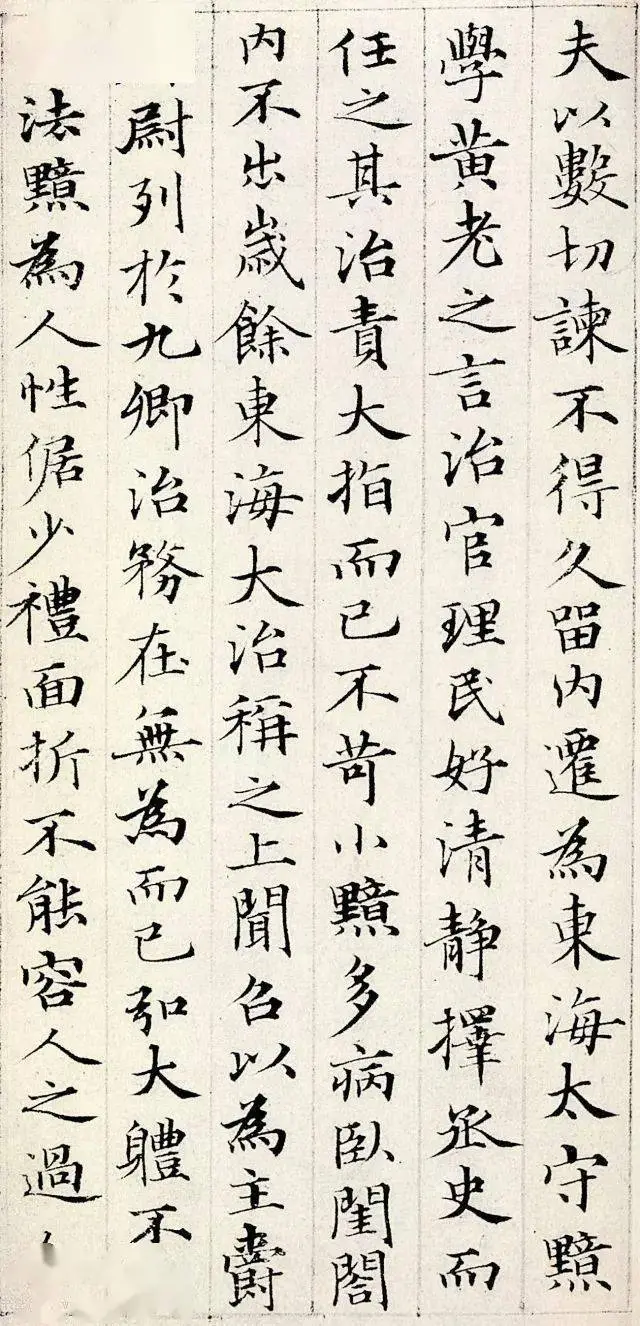 夫以數切諫不得久留内遷為東海太守黯
學黄老之言治官理民好清静擇丞史而
任之其治責大指而已不苛小黯多病臥閨閤
内不出歲餘東海大治稱之上聞召以為主爵
尉列於九卿治務在無為而已弘大軆不
法黯為人性倨少禮面折不能容人之過